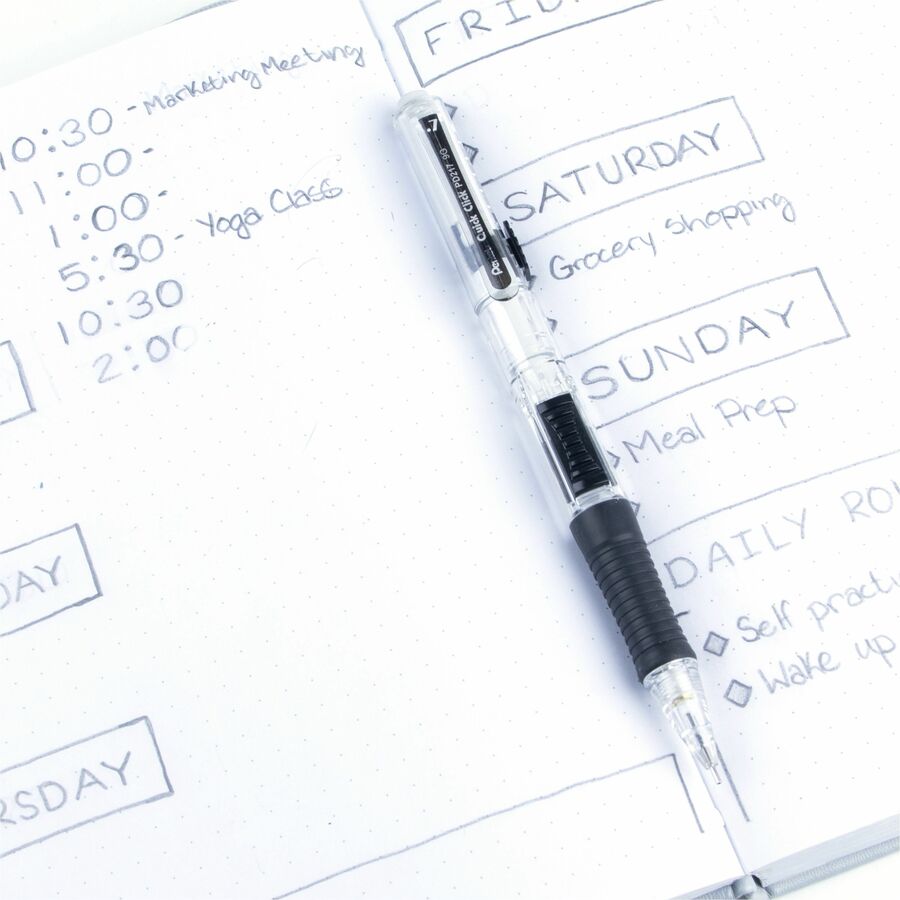 10:30 - Marketing Meeting
11:00 -
1:00 -
5:30 - Yoga Class
10:30
2:00
DAY
RSDAY
FRID
SATURDAY
Grocery shopping
SUNDAY
Meal Prep
DAILY ROU
Self practi
Wake up
.7
Quick Click PD217 9G